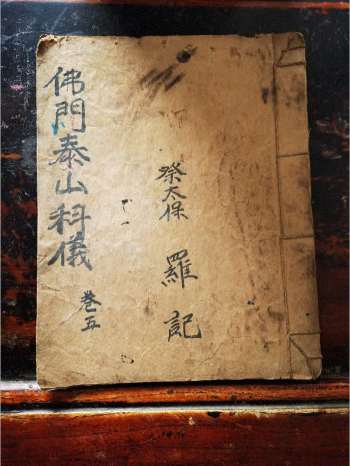 佛門泰山科儀
卷五
祭太保
羅記